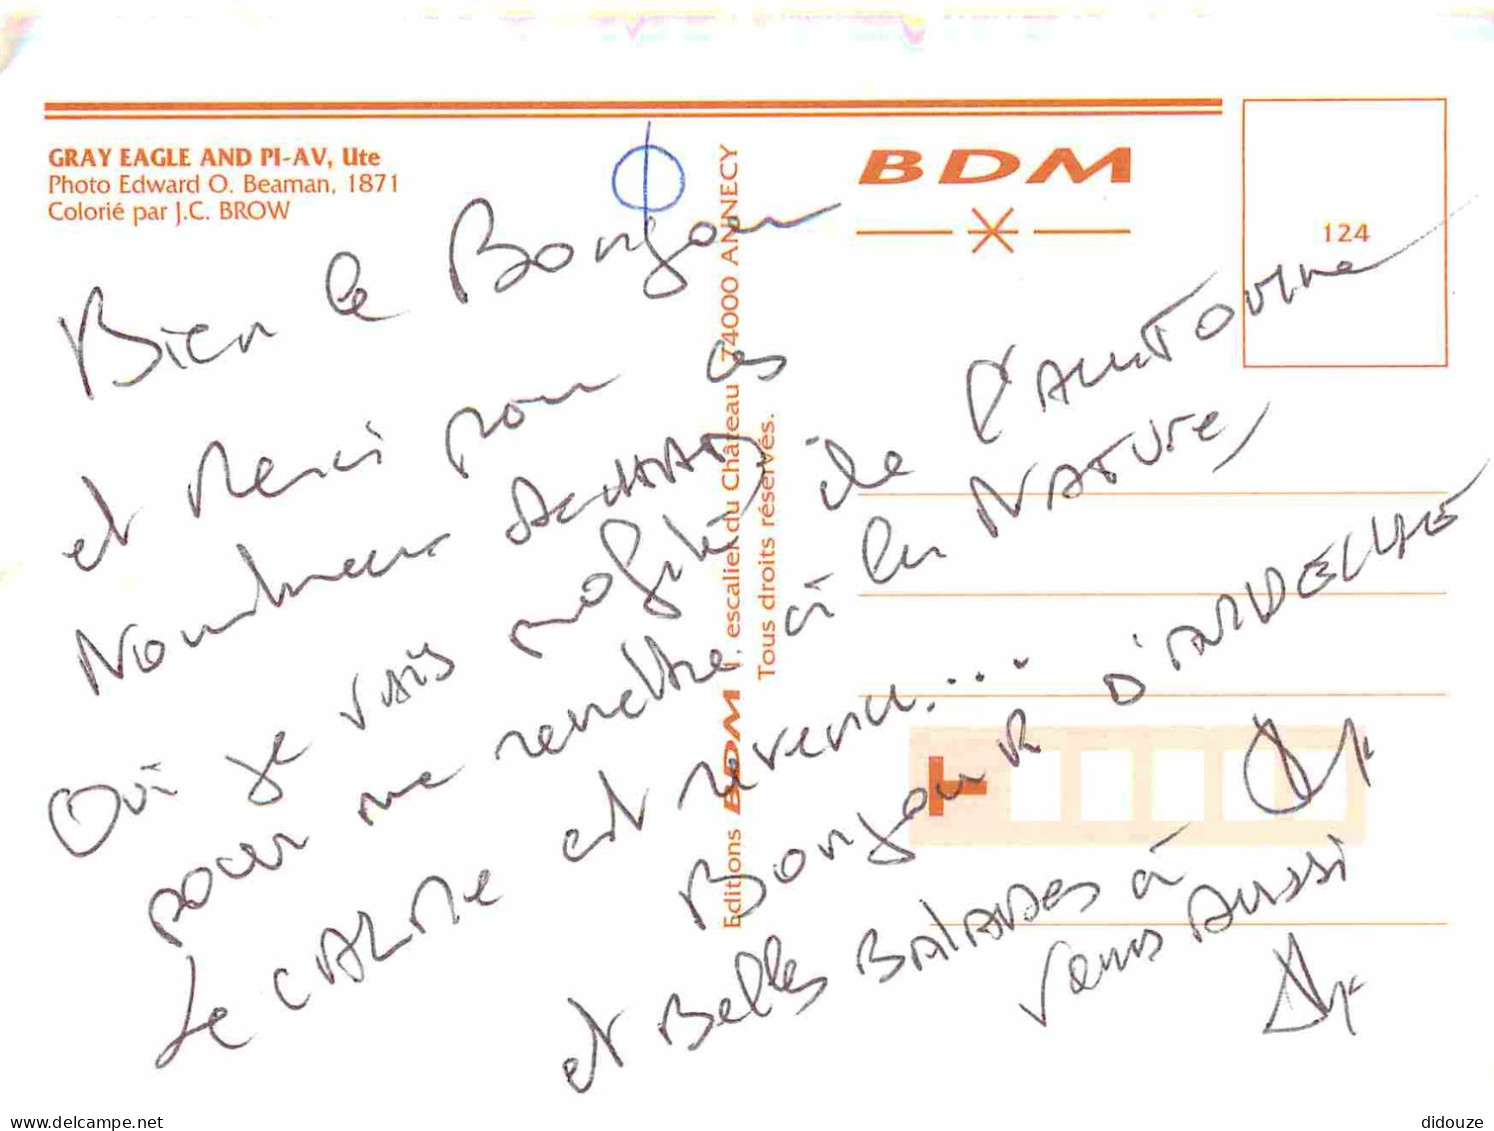 GRAY EAGLE AND PI-AV, Ute
Photo Edward O. Beaman, 1871
Colorié par J.C. BROW
BDM
124
Editions BDM 1, escalier du Château 74000 ANNECY
Tous droits réservés.
Bien le Bonjour
et Merci pour ces
Nombreux ACHATS
Oui je vais profiter de l'AUTOMNE
pour me remettre à la NATURE
Le CALME est revenu...
Bonjour D'ARDECHE
et Belles BALADES à
vous AUSSI
delcampe.net
didouze